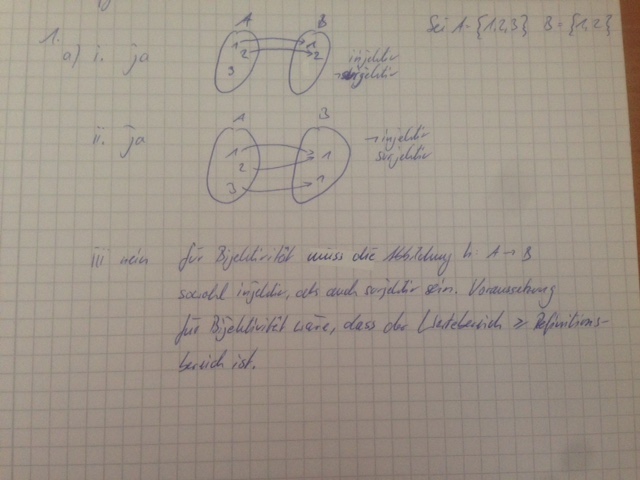 Sei A = {1,2,3} B = {1,2}
1.
a) i. ja
A B
1 1
2 2
3
injektiv
→ surjektiv
ii. ja
A B
1 1
2
3 1
→ injektiv
surjektiv
iii nein für Bijektivität muss die Abbildung h: A → B
sowohl injektiv, als auch surjektiv sein. Voraussetzung
für Bijektivität wäre, dass der Wertebereich ≥ Definitions-
bereich ist.